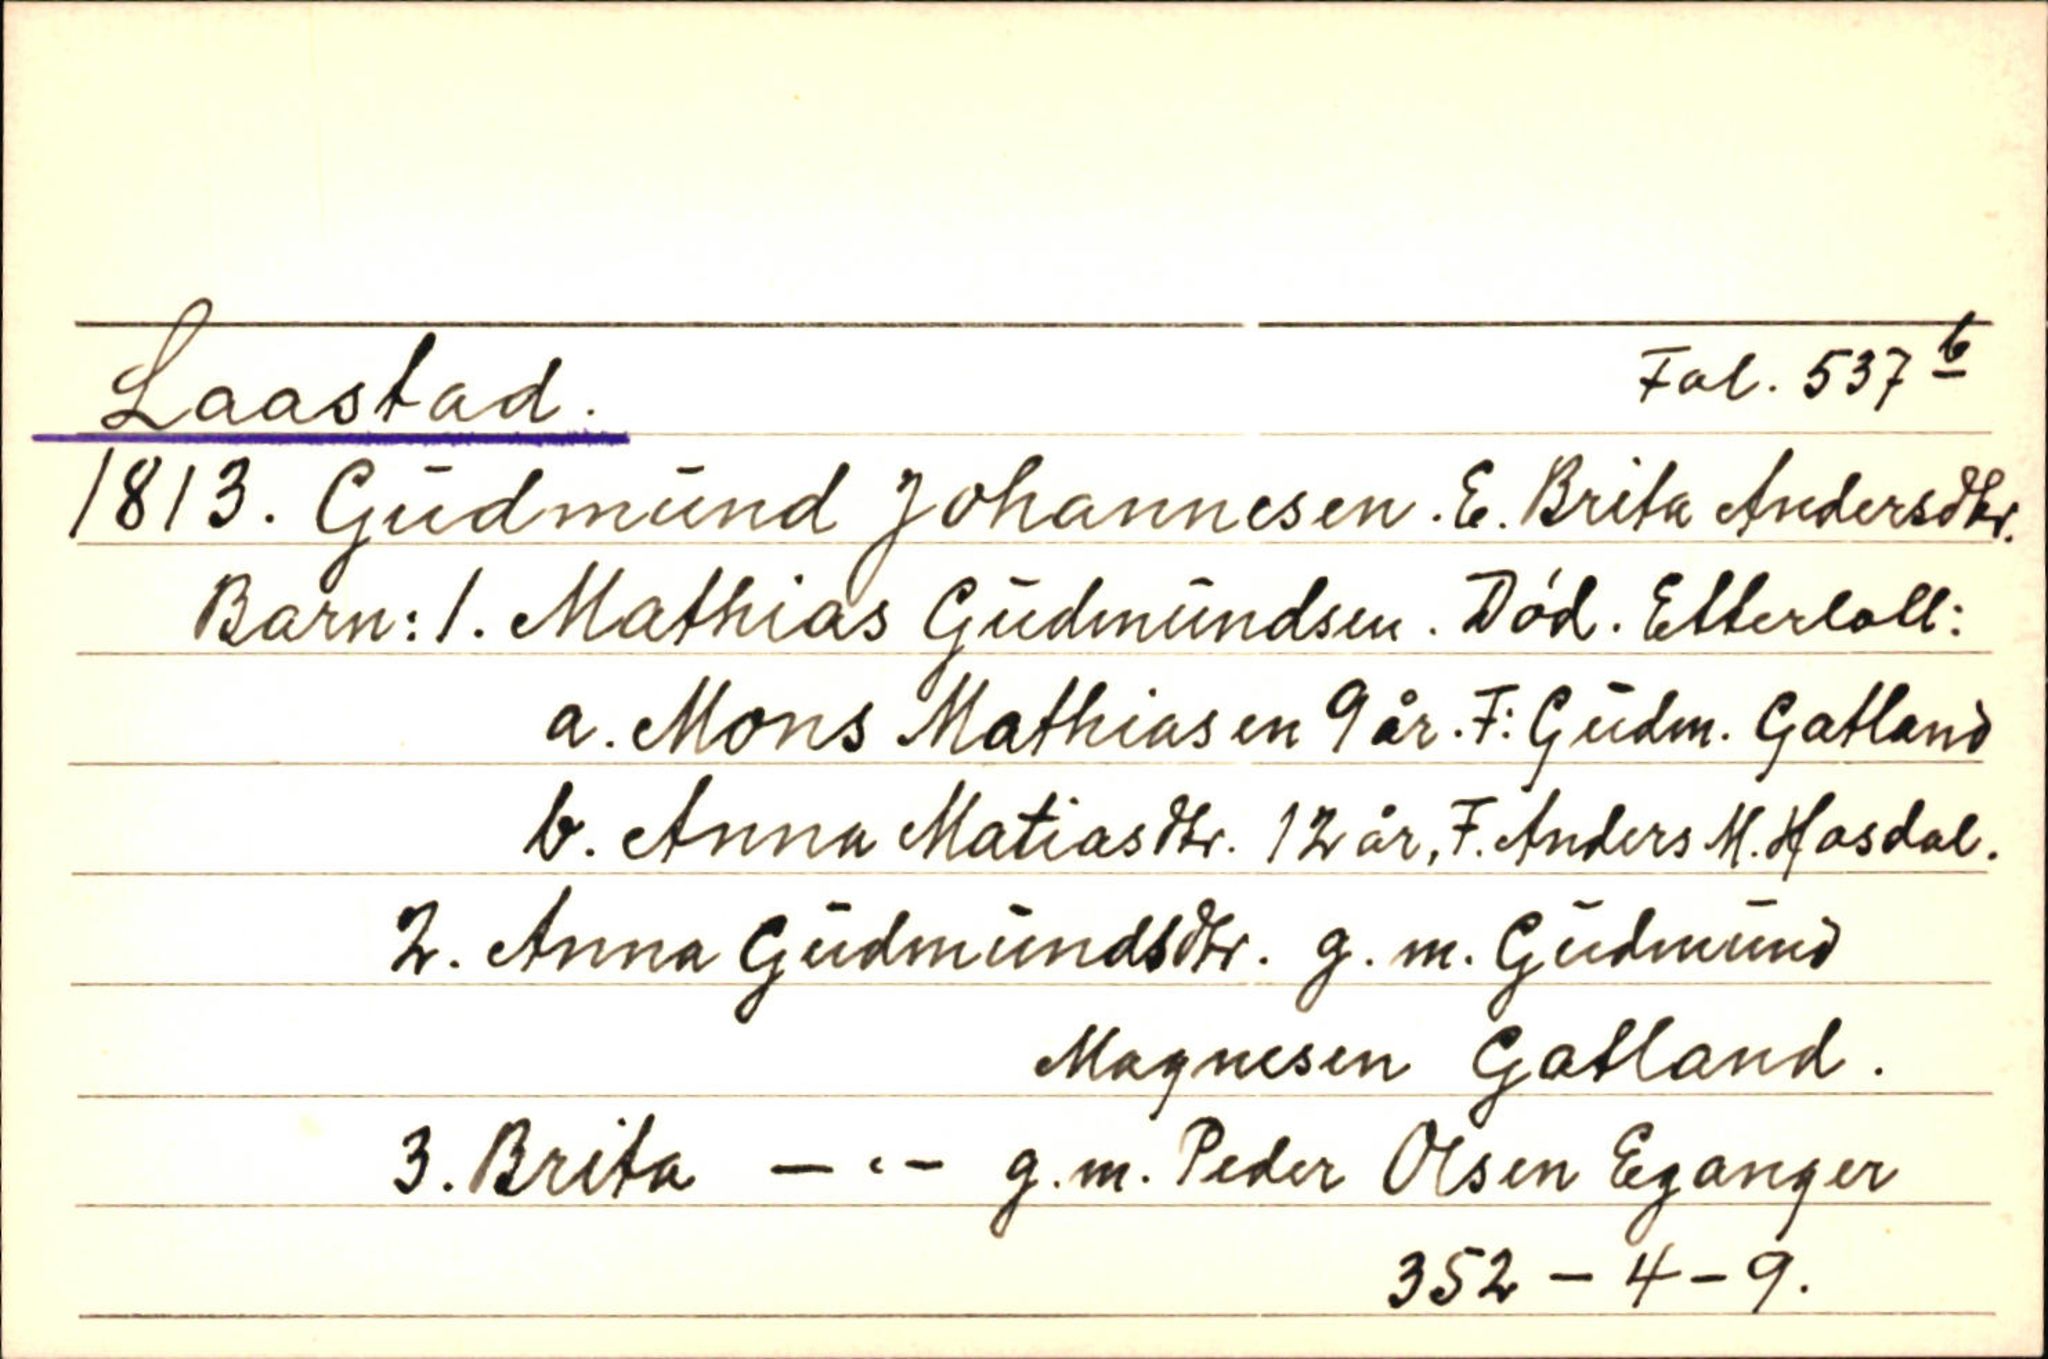 Laastad. Fol. 537 b
1813. Gudmund Johannesen. E. Brita Andersdtr.
Barn: 1. Mathias Gudmundsen. Död. Etterlatt:
a. Mons Mathiasen 9 år. F: Gudm. Gatland
b. Anna Matiasdtr. 12 år, F. Anders M. Hosdal.
2. Anna Gudmundsdtr. g. m. Gudmund
Magnesen Gatland.
3. Brita — " — g. m. Peder Olsen Eganger
352 – 4 – 9.